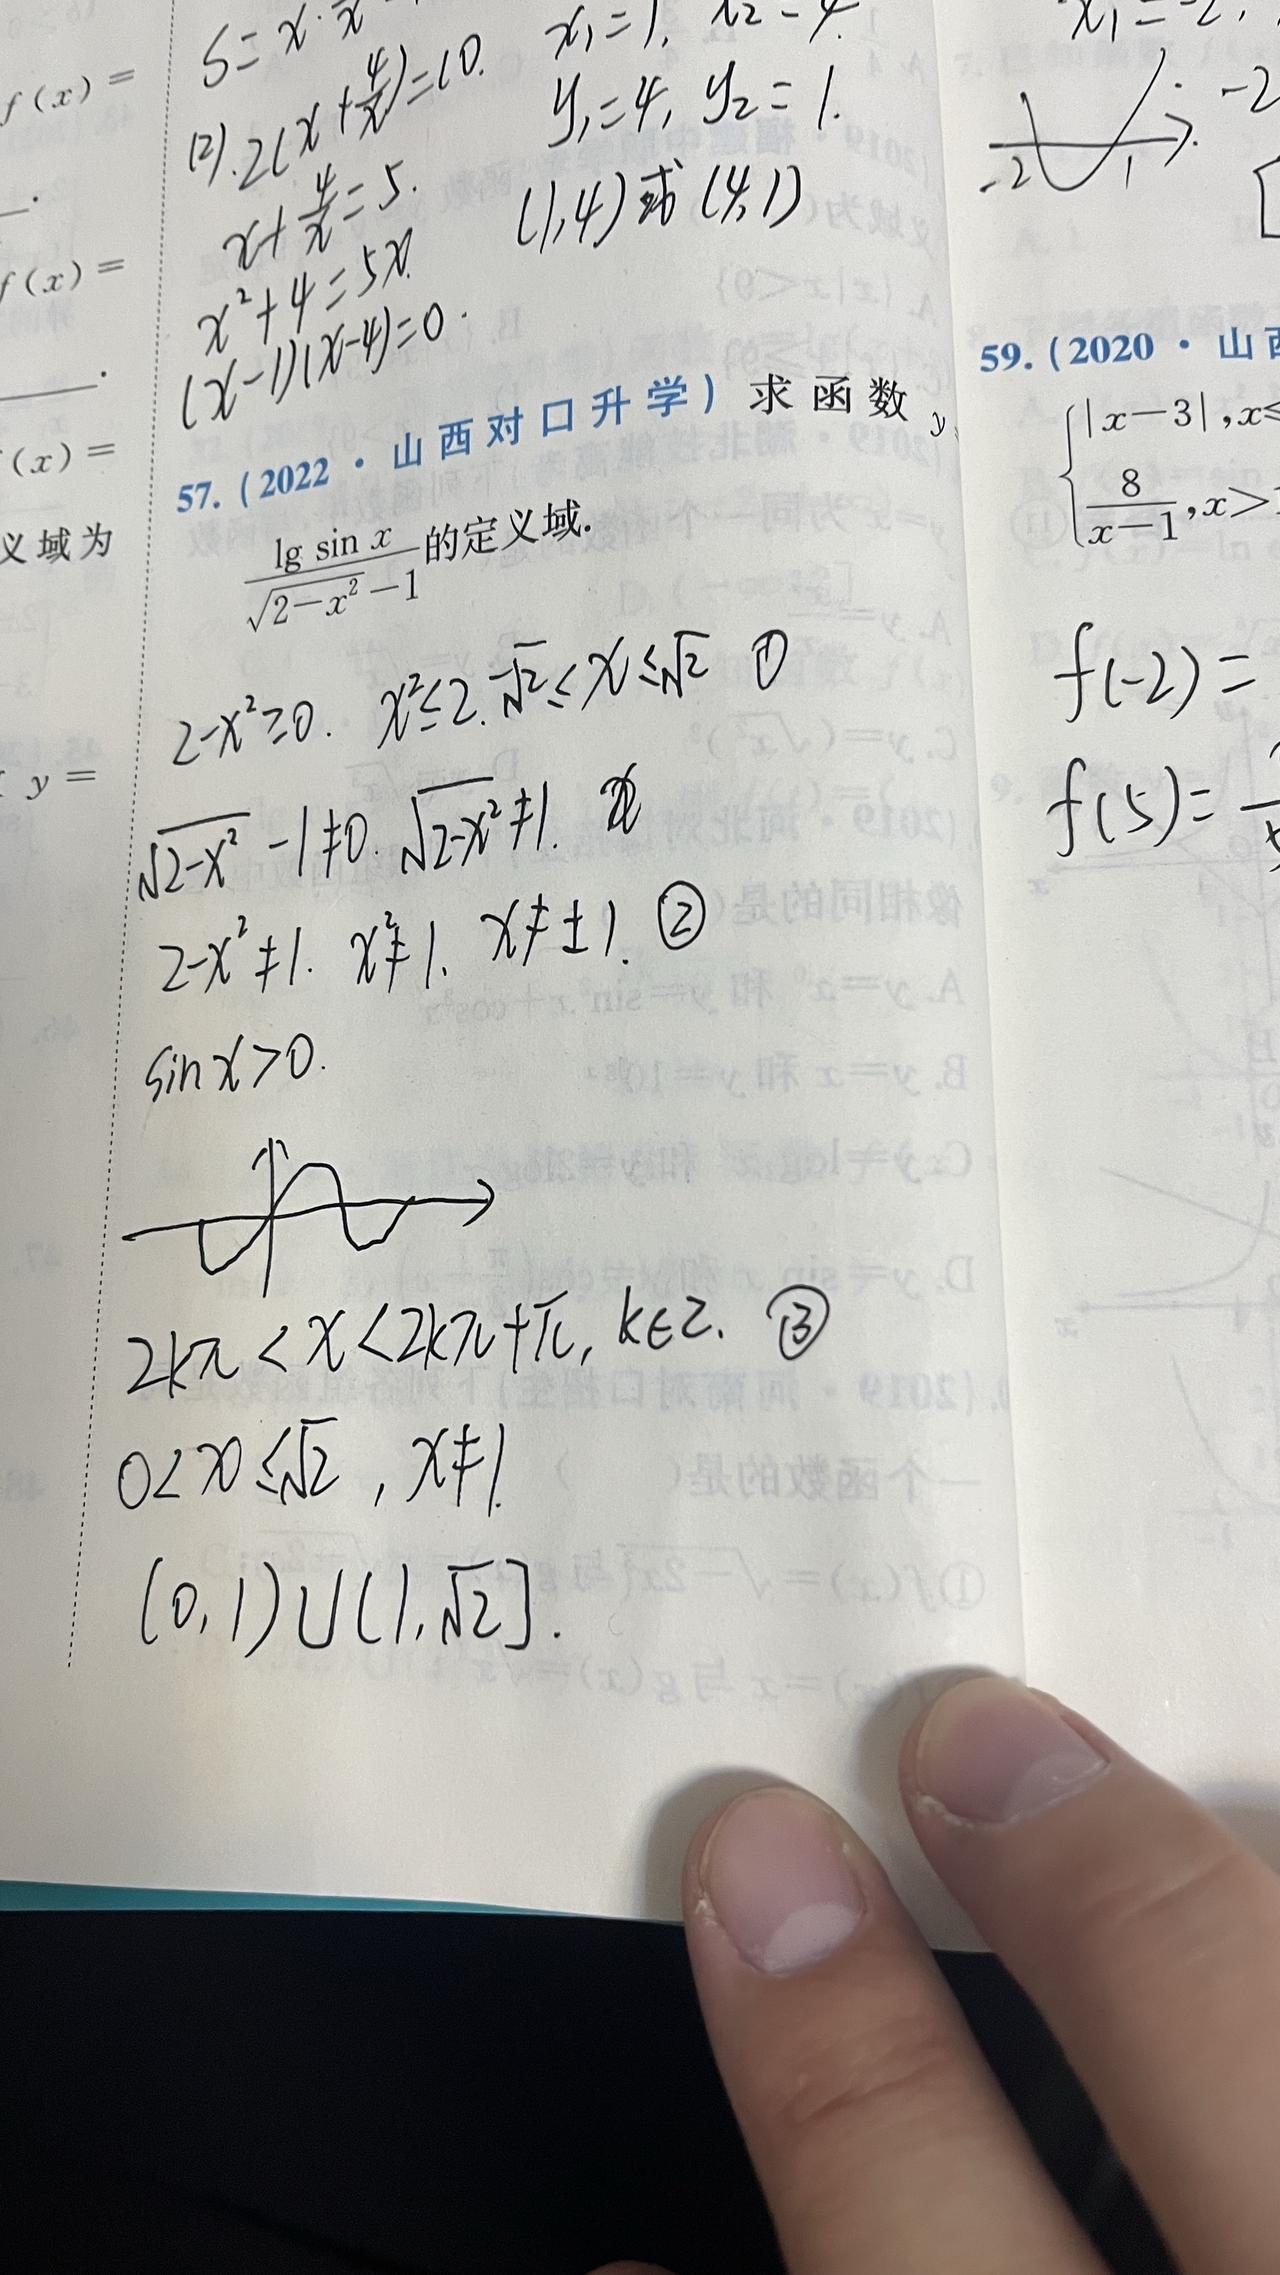 f(x)=
f(x)=
(x)=
义域为
y=
S=x·
(2).2(x+4/x)=10.
x+4/x=5.
x²+4=5x.
(x-1)(x-4)=0.
x₁=1, x₂=4.
y₁=4, y₂=1.
(1,4)或(4,1)
57.(2022·山西对口升学)求函数 y
lg sin x/(√(2-x²)-1)的定义域.
2-x²≥0. x²≤2. -√2≤x≤√2 ①
√(2-x²)-1≠0. √(2-x²)≠1.
2-x²≠1. x²≠1. x≠±1. ②
sinx>0.
2kπ<x<2kπ+π, k∈Z. ③
0<x≤√2, x≠1.
(0,1)∪(1,√2].
x₁=-2,
-2
-2 1
59.(2020·山西
{|x-3|,x≤
8/(x-1),x>
f(-2)=
f(5)=